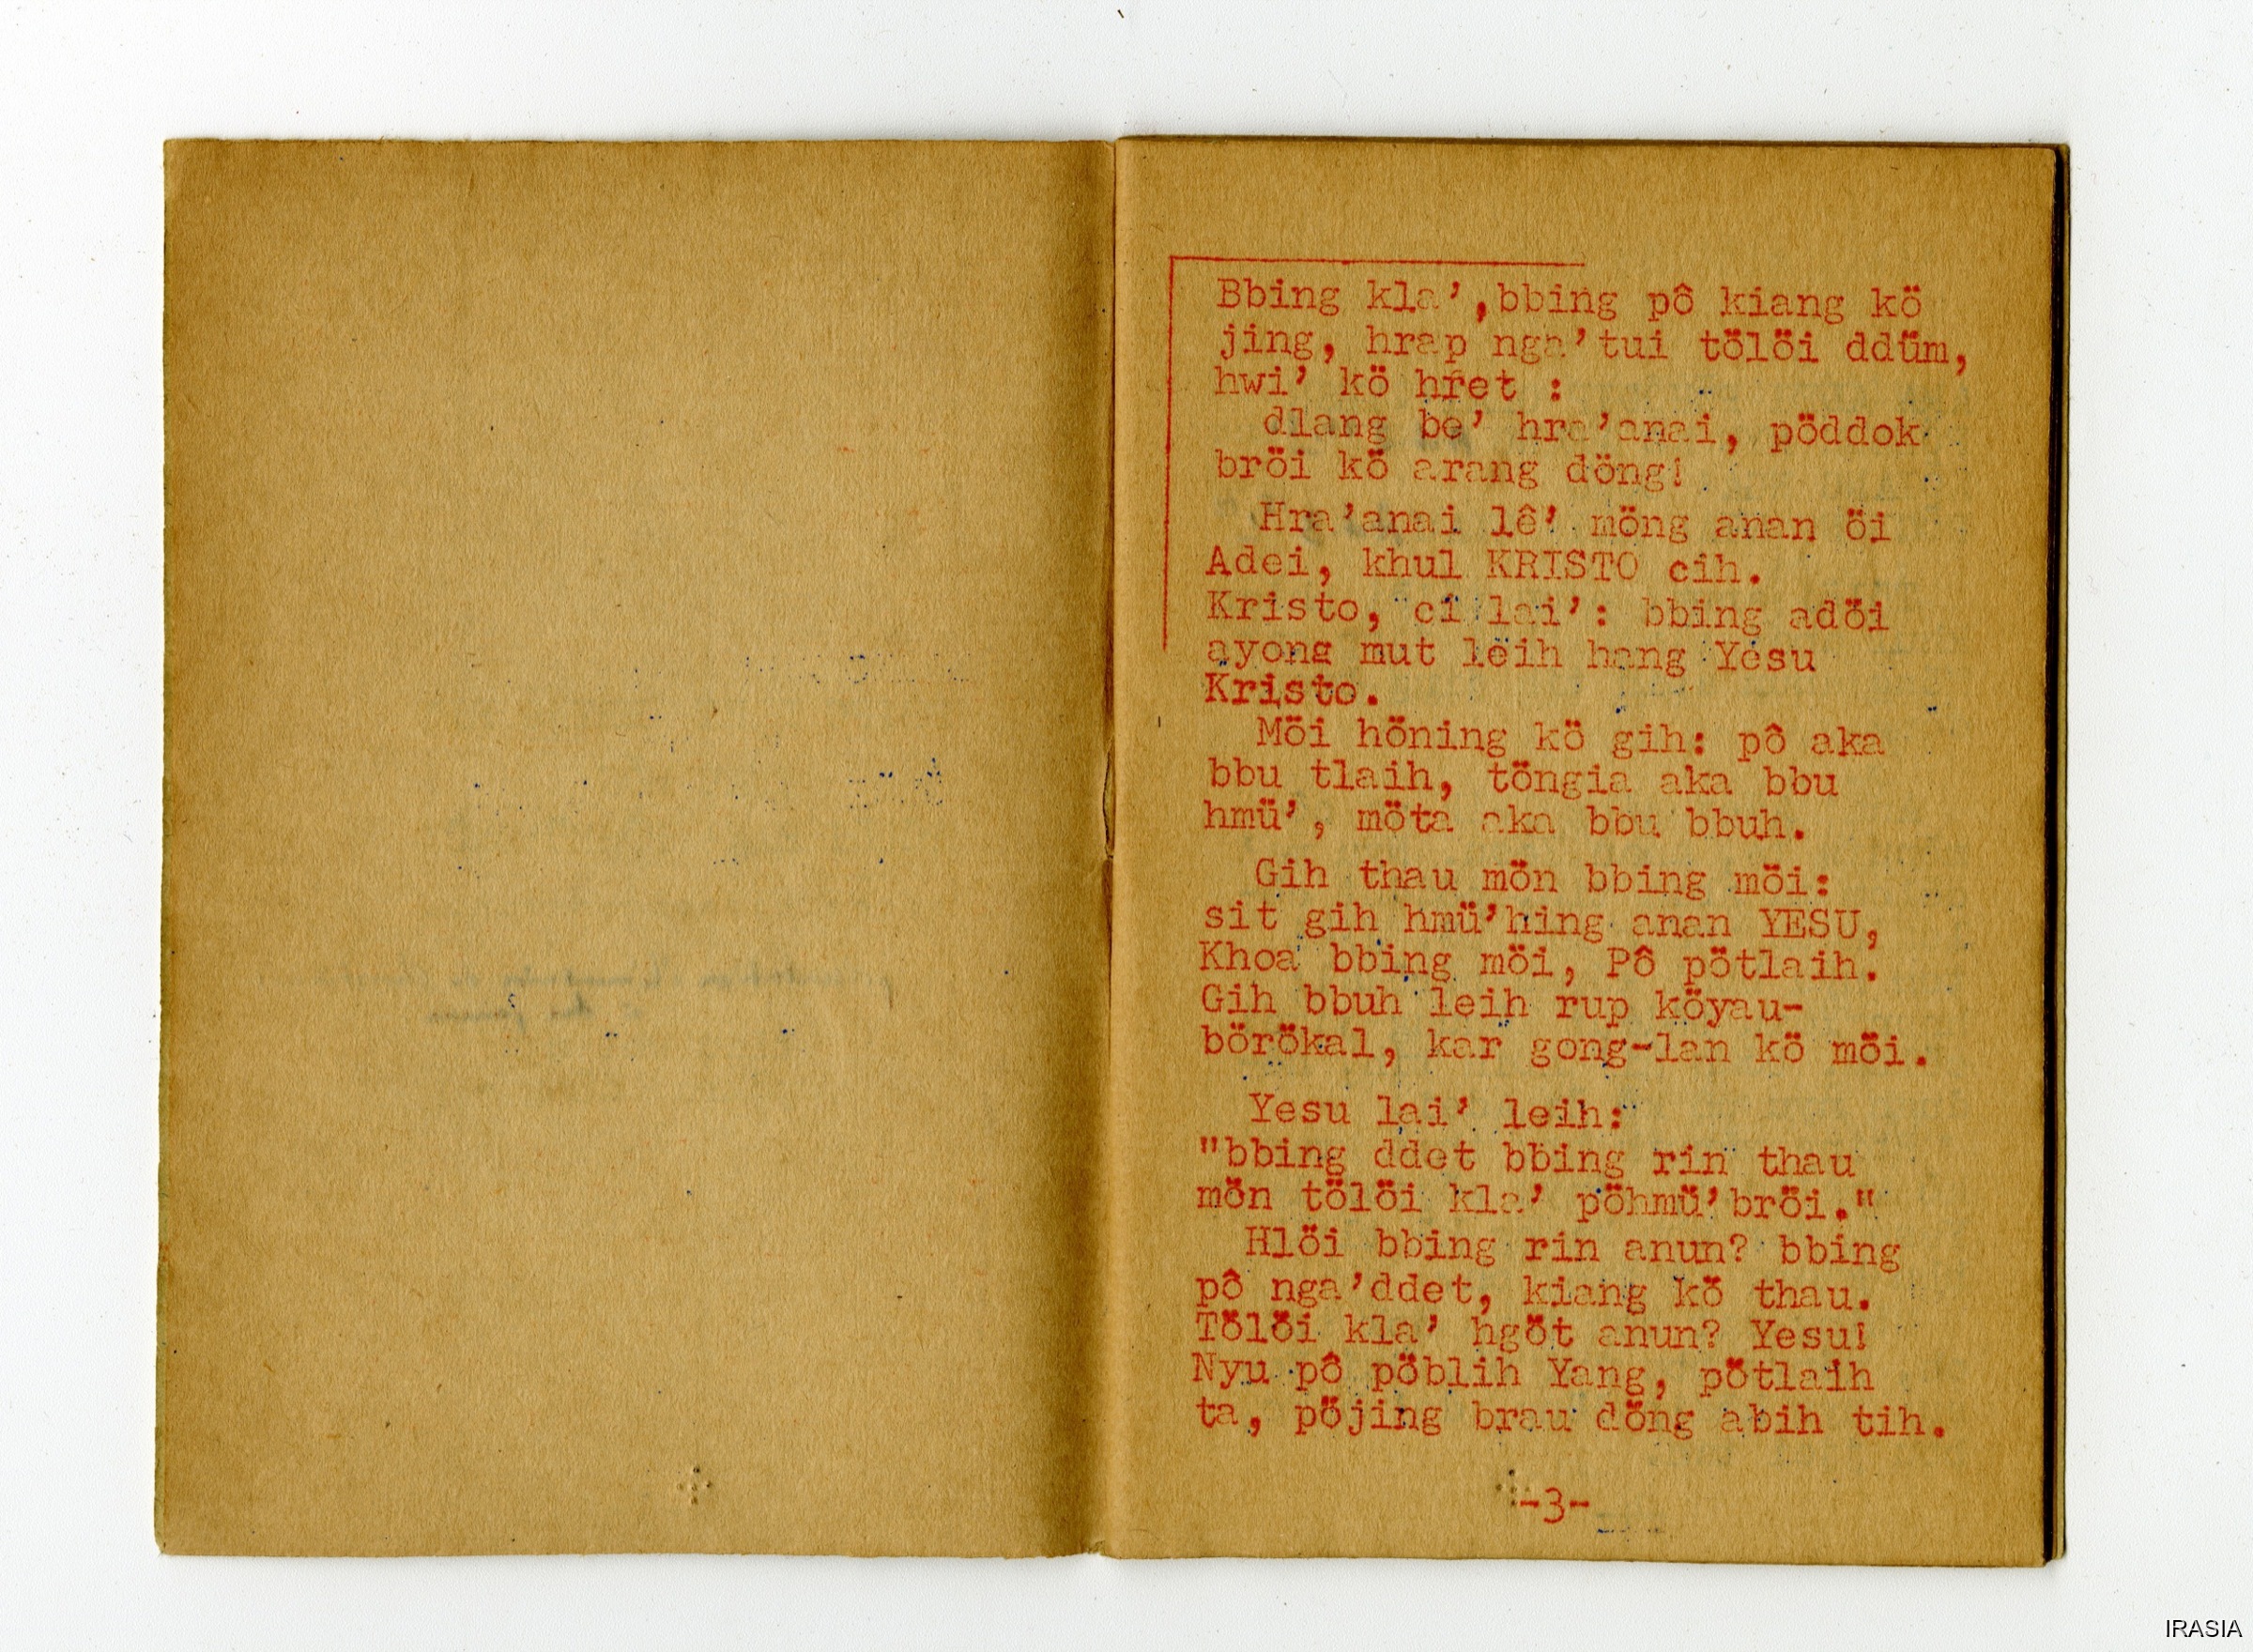 Bbing kla’,bbing pô kiang kö
jing, hrap nga’tui tölöi ddüm,
hwi’ kö hret :
dlang be’ hra’anai, pöddok
bröi kö arang döng!
Hra’anai lê’ möng anan öi
Adei, khul KRISTO cih.
Kristo, cí lai’: bbing adöi
ayong mut leih hang Yesu
Kristo.
Möi höning kö gih: pô aka
bbu tlaih, töngia aka bbu
hmü’, möta aka bbu bbuh.
Gih thau mön bbing möi:
sit gih hmü’hing anan YESU,
Khoa bbing möi, Pô pötlaih.
Gih bbuh leih rup köyau-
börökal, kar gong-lan kö möi.
Yesu lai’ leih:
"bbing ddet bbing rin thau
mön tölöi kla’ pöhmü’bröi."
Hlöi bbing rin anun? bbing
pô nga’ddet, kiang kö thau.
Tölöi kla’ hgöt anun? Yesu!
Nyu pô pöblih Yang, pötlaih
ta, pöjing brau döng abih tih.
-3-
IRASIA